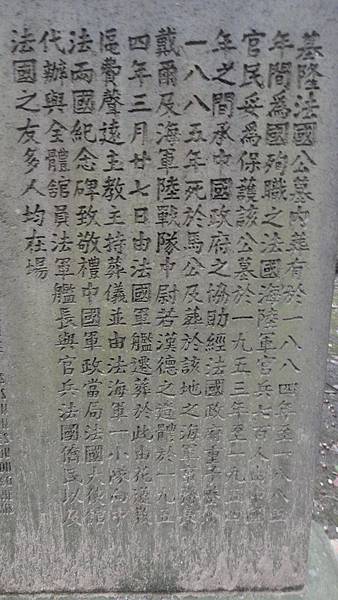 基隆法國公墓內葬有於一八八四年至一八八五
年間為國殉職之法國海陸軍官兵七百人由中國
官民妥為保護該公墓於一九五三年至一九五四
年之間承中國政府之協助經法國政府重予整修
一八八五年死於馬公及葬於該地之海軍
戴爾及海軍陸戰隊中尉若漢德之遺體於一九五
四年三月廿七日由法國軍艦遷葬於此由花蓮教
區費聲遠主教主持葬儀並由法海軍一小隊向中
法兩國紀念碑致敬禮中國軍政當局法國大使館
代辦與全體館員法軍艦長與官兵法國僑民以及
法國之友多人均在場